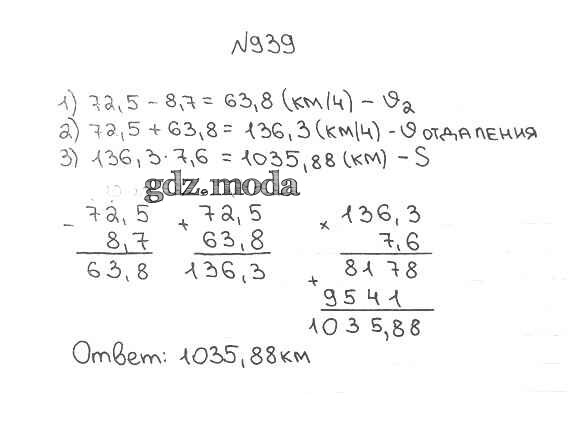 №939
1) 72,5 - 8,7 = 63,8 (км/ч) - ϑ₂
2) 72,5 + 63,8 = 136,3 (км/ч) - ϑ отдаления
3) 136,3 · 7,6 = 1035,88 (км) - S
gdz.moda
- 72,5 + 72,5 × 136,3
8,7 63,8 7,6
63,8 136,3 8178
+
9541
1035,88
Ответ: 1035,88км